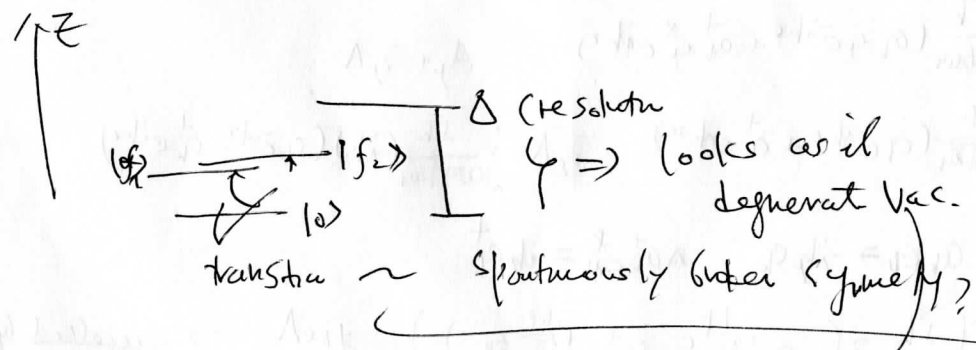 E
Δ (resolution
|f₁⟩ |f₂⟩ ⇒ looks as if
degenerat Vac.
|0⟩
transition ~ Spontaneously broken symmetry?